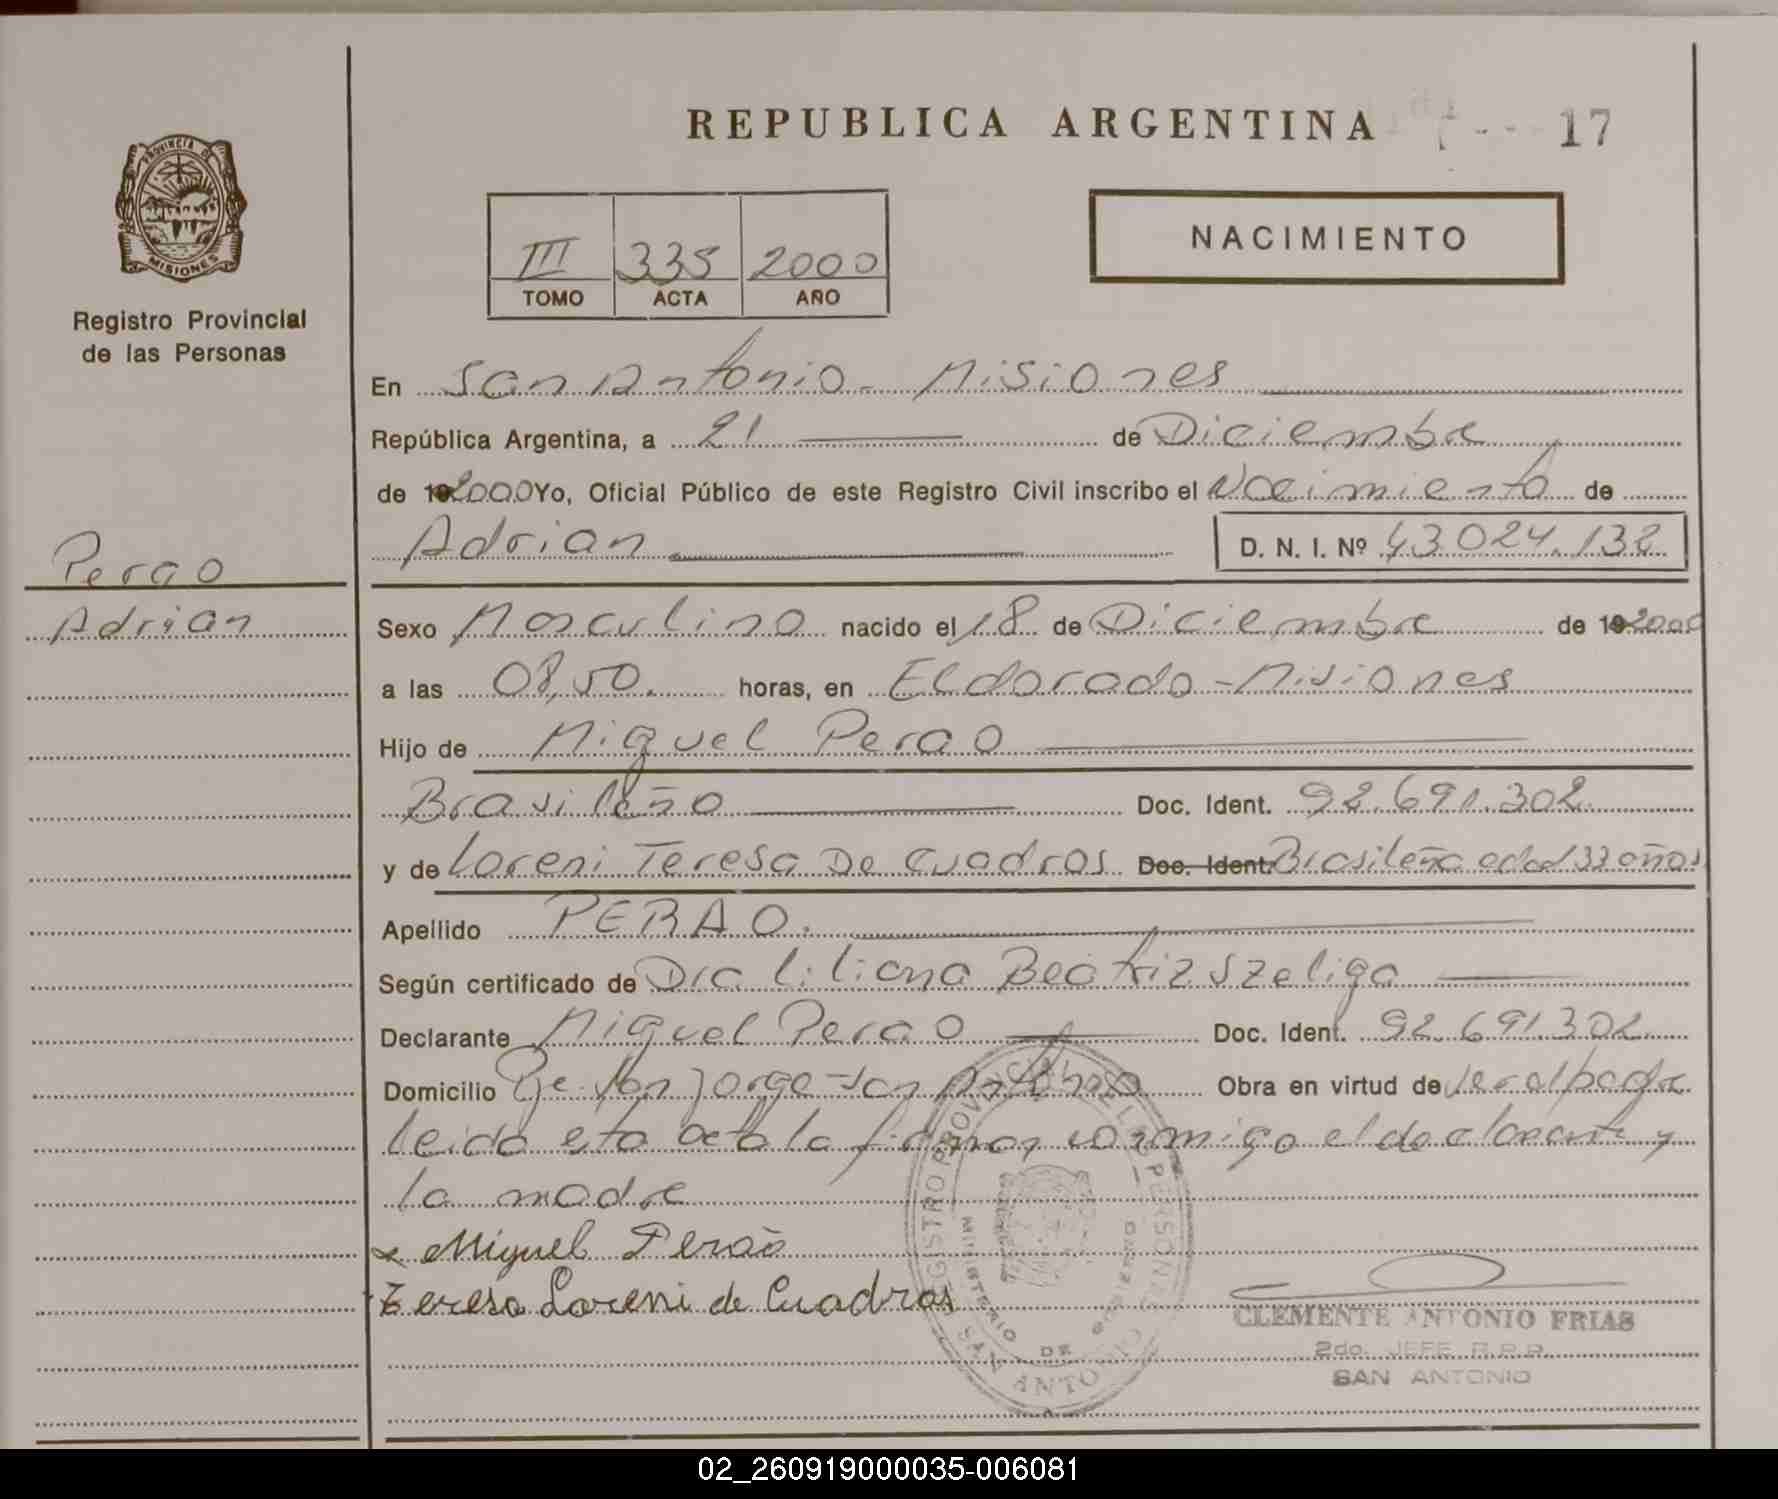 REPUBLICA ARGENTINA
17
PROVINCIA DE
MISIONES
Registro Provincial
de las Personas
III 335 2000
TOMO ACTA AÑO
NACIMIENTO
En San Antonio - Misiones
República Argentina, a 21 de Diciembre
de 19 2000 Yo, Oficial Público de este Registro Civil inscribo el Nacimiento de
Adrian D. N. I. Nº 43.024.132
Perao
Adrian
Sexo Masculino nacido el 18 de Diciembre de 19 2000
a las 08,50. horas, en Eldorado - Misiones
Hijo de Miguel Perao
Brasileño Doc. Ident. 92.691.302
y de Loreni Teresa De Cuadros Doc. Ident. Brasileña edad 33 años
Apellido PERAO.
Según certificado de Dra Liliana Beatriz Szeliga
Declarante Miguel Perao Doc. Ident. 92.691.302
Domicilio Pje San Jorge - San Antonio Obra en virtud de ser el padre
leida esta acta la firman conmigo el declarante y
la madre
Miguel Perao
Teresa Loreni de Cuadros
REGISTRO PROVINCIAL DE LAS PERSONAS
MINISTERIO DE GOBIERNO
SAN ANTONIO
CLEMENTE ANTONIO FRIAS
2do. JEFE R.P.P.
SAN ANTONIO
02_260919000035-006081